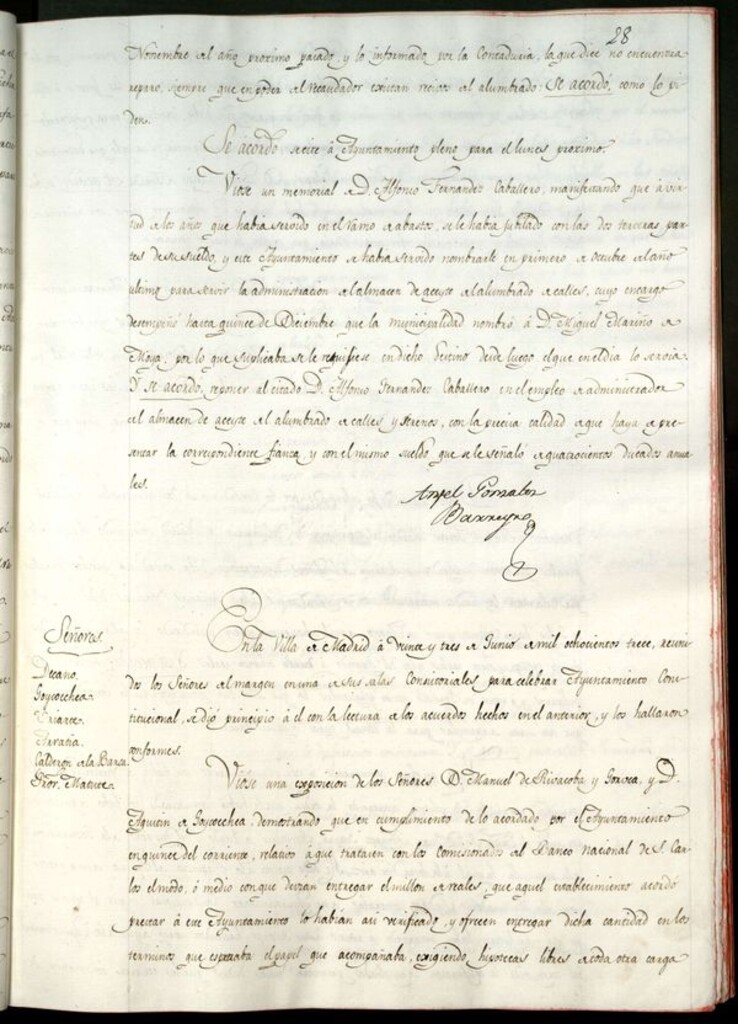 28
Noviembre del año proximo pasado, y lo informado por la Contaduria, la que dice no encuentra
reparo, siempre que en poder del recaudador existan recivos del alumbrado: Se acordó, como lo pi-
den.
Se acordó se cite á Ayuntamiento pleno para el lunes proximo.
Viose un memorial de D. Alfonso Fernandez Caballero, manifestando que á vir-
tud de los años que habia servido en el ramo de abastos, se le habia jubilado con las dos terceras par-
tes de su sueldo, y este Ayuntamiento se habia servido nombrarle en primero de Octubre del año
ultimo para servir la administracion del almacen de aceyte del alumbrado de calles, cuyo encargo
desempeñó hasta quince de Diciembre que la municipalidad nombró á D. Miguel Mariño de
Moya, por lo que suplicaba se le repusiese en dicho Destino desde luego el que en el dia lo servia.
Y se acordó, reponer al citado D. Alfonso Fernandez Caballero en el empleo de administrador
del almacen de aceyte del alumbrado de calles y serenos, con la precisa calidad de que haya de pre-
sentar la correspondiente fianza, y con el mismo sueldo que se le señaló de quatrocientos ducados anua-
les.
Angel Gonzalez
Barreyro
Señores
Decano.
Goycoechea.
Uriarte.
Arratia.
Calderon de la Barca.
Pror. Matute.
En la Villa de Madrid á veinte y tres de Junio de mil ochocientos trece, reuni-
dos los Señores del margen en una de sus salas Consistoriales para celebrar Ayuntamiento Cons-
titucional, se dió principio á él con la lectura de los acuerdos hechos en el anterior, y los hallaron
conformes.
Viose una exposicion de los Señores D. Manuel de Rivacoba y Gorvea, y D.
Agustin de Goycoechea, demostrando que en cumplimiento de lo acordado por el Ayuntamiento
en quince del corriente, relativo á que tratasen con los Comisionados del Banco Nacional de S. Car-
los el modo, ó medio con que devian entregar el millon de reales, que aquel establecimiento acordó
prestar á este Ayuntamiento lo habian asi verificado, y ofrecen entregar dicha cantidad en los
terminos que espresaba el papel que acompañaba, exigiendo hipotecas libres de toda otra carga